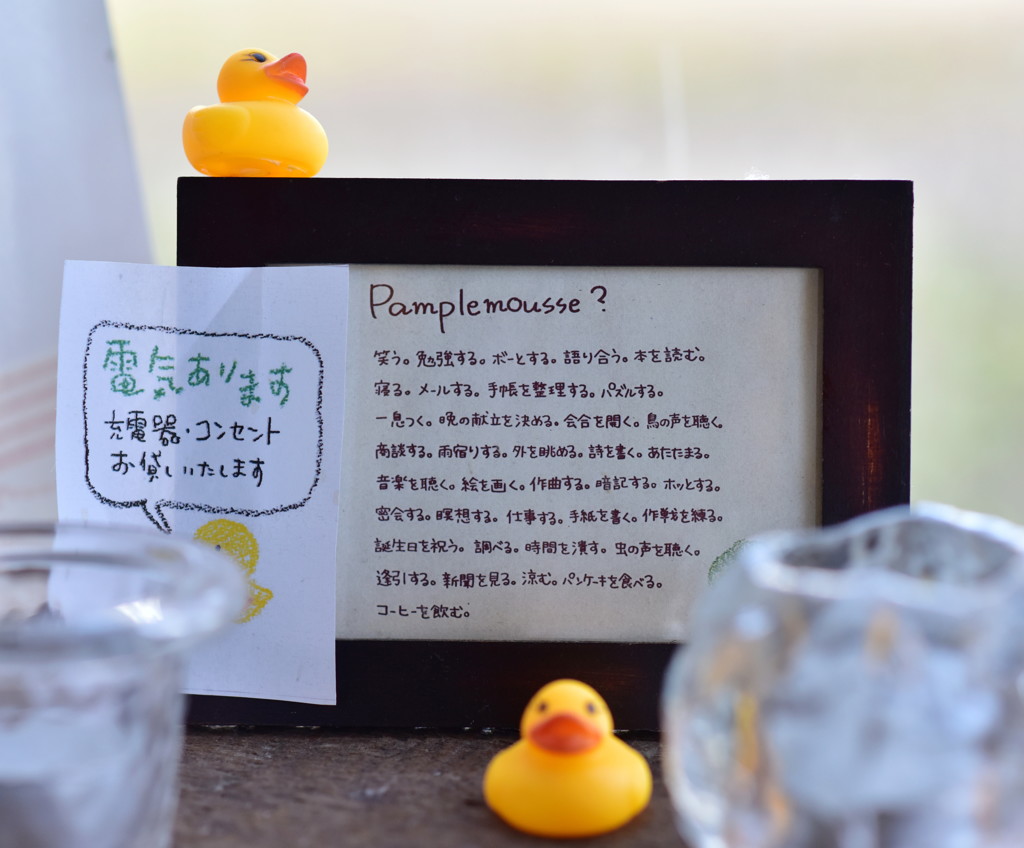 Pamplemousse?
笑う。勉強する。ボーとする。語り合う。本を読む。
寝る。メールする。手帳を整理する。パズルする。
一息つく。晩の献立を決める。会合を開く。鳥の声を聴く。
商談する。雨宿りする。外を眺める。詩を書く。あたたまる。
音楽を聴く。絵を画く。作曲する。暗記する。ホッとする。
密会する。瞑想する。仕事する。手紙を書く。作戦を練る。
誕生日を祝う。調べる。時間を潰す。虫の声を聴く。
逢引する。新聞を見る。涼む。パンケーキを食べる。
コーヒーを飲む。
電気あります
充電器・コンセント
お貸しいたします